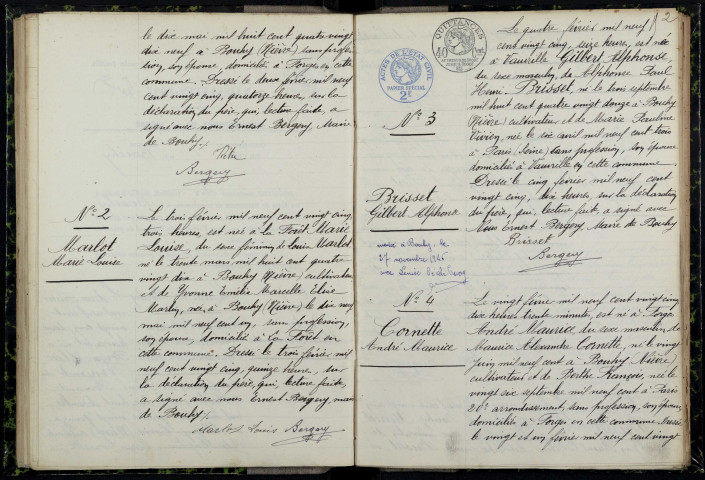 le dix mai mil huit cent quatre vingt
dix neuf à Bouhy (Nièvre) sans profes-
sion, son épouse, domiciliés à Forges en cette
commune. Dressé le deux février mil neuf
cent vingt cinq, quatorze heures, sur la
déclaration du père, qui, lecture faite, a
signé avec nous Ernest Bergery, Maire
de Bouhy./.
Bergery
N° 2
Marlot
Marie-Louise
Le trois février mil neuf cent vingt cinq,
trois heures, est née à la Forêt Marie
Louise, du sexe féminin de Louis Marlot
né le trente mai mil huit cent quatre
vingt dix à Bouhy (Nièvre) cultivateur
et de Yvonne Emélie Marcelle Elise
Martin, née à Bouhy (Nièvre) le dix neuf
mai mil neuf cent un, sans profession,
son épouse, domiciliés à la Forêt en
cette commune. Dressé le trois février mil
neuf cent vingt cinq, quinze heures, sur
la déclaration du père, qui, lecture faite,
a signé avec nous Ernest Bergery, maire
de Bouhy./.
Marlot Louis Bergery
2
QUITTANCES
40
ACTES DE L'ÉTAT CIVIL
PAPIER SPÉCIAL
2F
N° 3
Brisset
Gilbert Alphonse
marié à Bouhy le
27 novembre
avec Louise
Le quatre février mil neuf
cent vingt cinq, seize heures, est né
à Vaurelle Gilbert Alphonse
du sexe masculin, de Alphonse Paul
Henri Brisset, né le trois septembre
mil huit cent quatre vingt douze à Bouhy
(Nièvre) cultivateur et de Marie Pauline
Vivien, née le six avril mil neuf cent trois
à Paris (Seine) sans profession, son épouse
domiciliés à Vaurelle en cette commune.
Dressé le cinq février mil neuf cent
vingt cinq, dix heures, sur la déclaration
du père, qui, lecture faite, a signé avec
Nous Ernest Bergery, Maire de Bouhy
Brisset
Bergery
N° 4
Cornette
André Maurice
Le vingt février mil neuf cent vingt cinq
dix heures trente minutes, est né à Forges
André Maurice, du sexe masculin de
Maurice Alexandre Cornette, né le vingt
juin mil neuf cent à Bouhy (Nièvre)
cultivateur et de Berthe François, née le
vingt six septembre mil neuf cent à Paris
20e arrondissement, sans profession, son épouse,
domiciliés à Forges en cette commune. Dressé
le vingt et un février mil neuf cent vingt